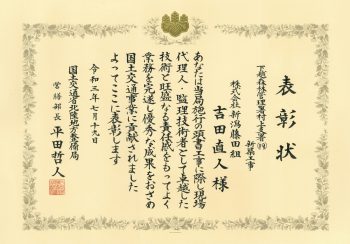 表彰状
下越森林管理署村上支署(19)
新築工事
株式会社新潟藤田組
吉田直人 様
あなたは当局施行の頭書工事に際し現場
代理人・監理技術者として卓越した
技術と旺盛なる責任感をもってよく
業務を完遂し優秀な成果をおさめ
国土交通事業に貢献されました
よってここに表彰します
令和三年七月十九日
国土交通省北陸地方整備局
営繕部長 平田哲人